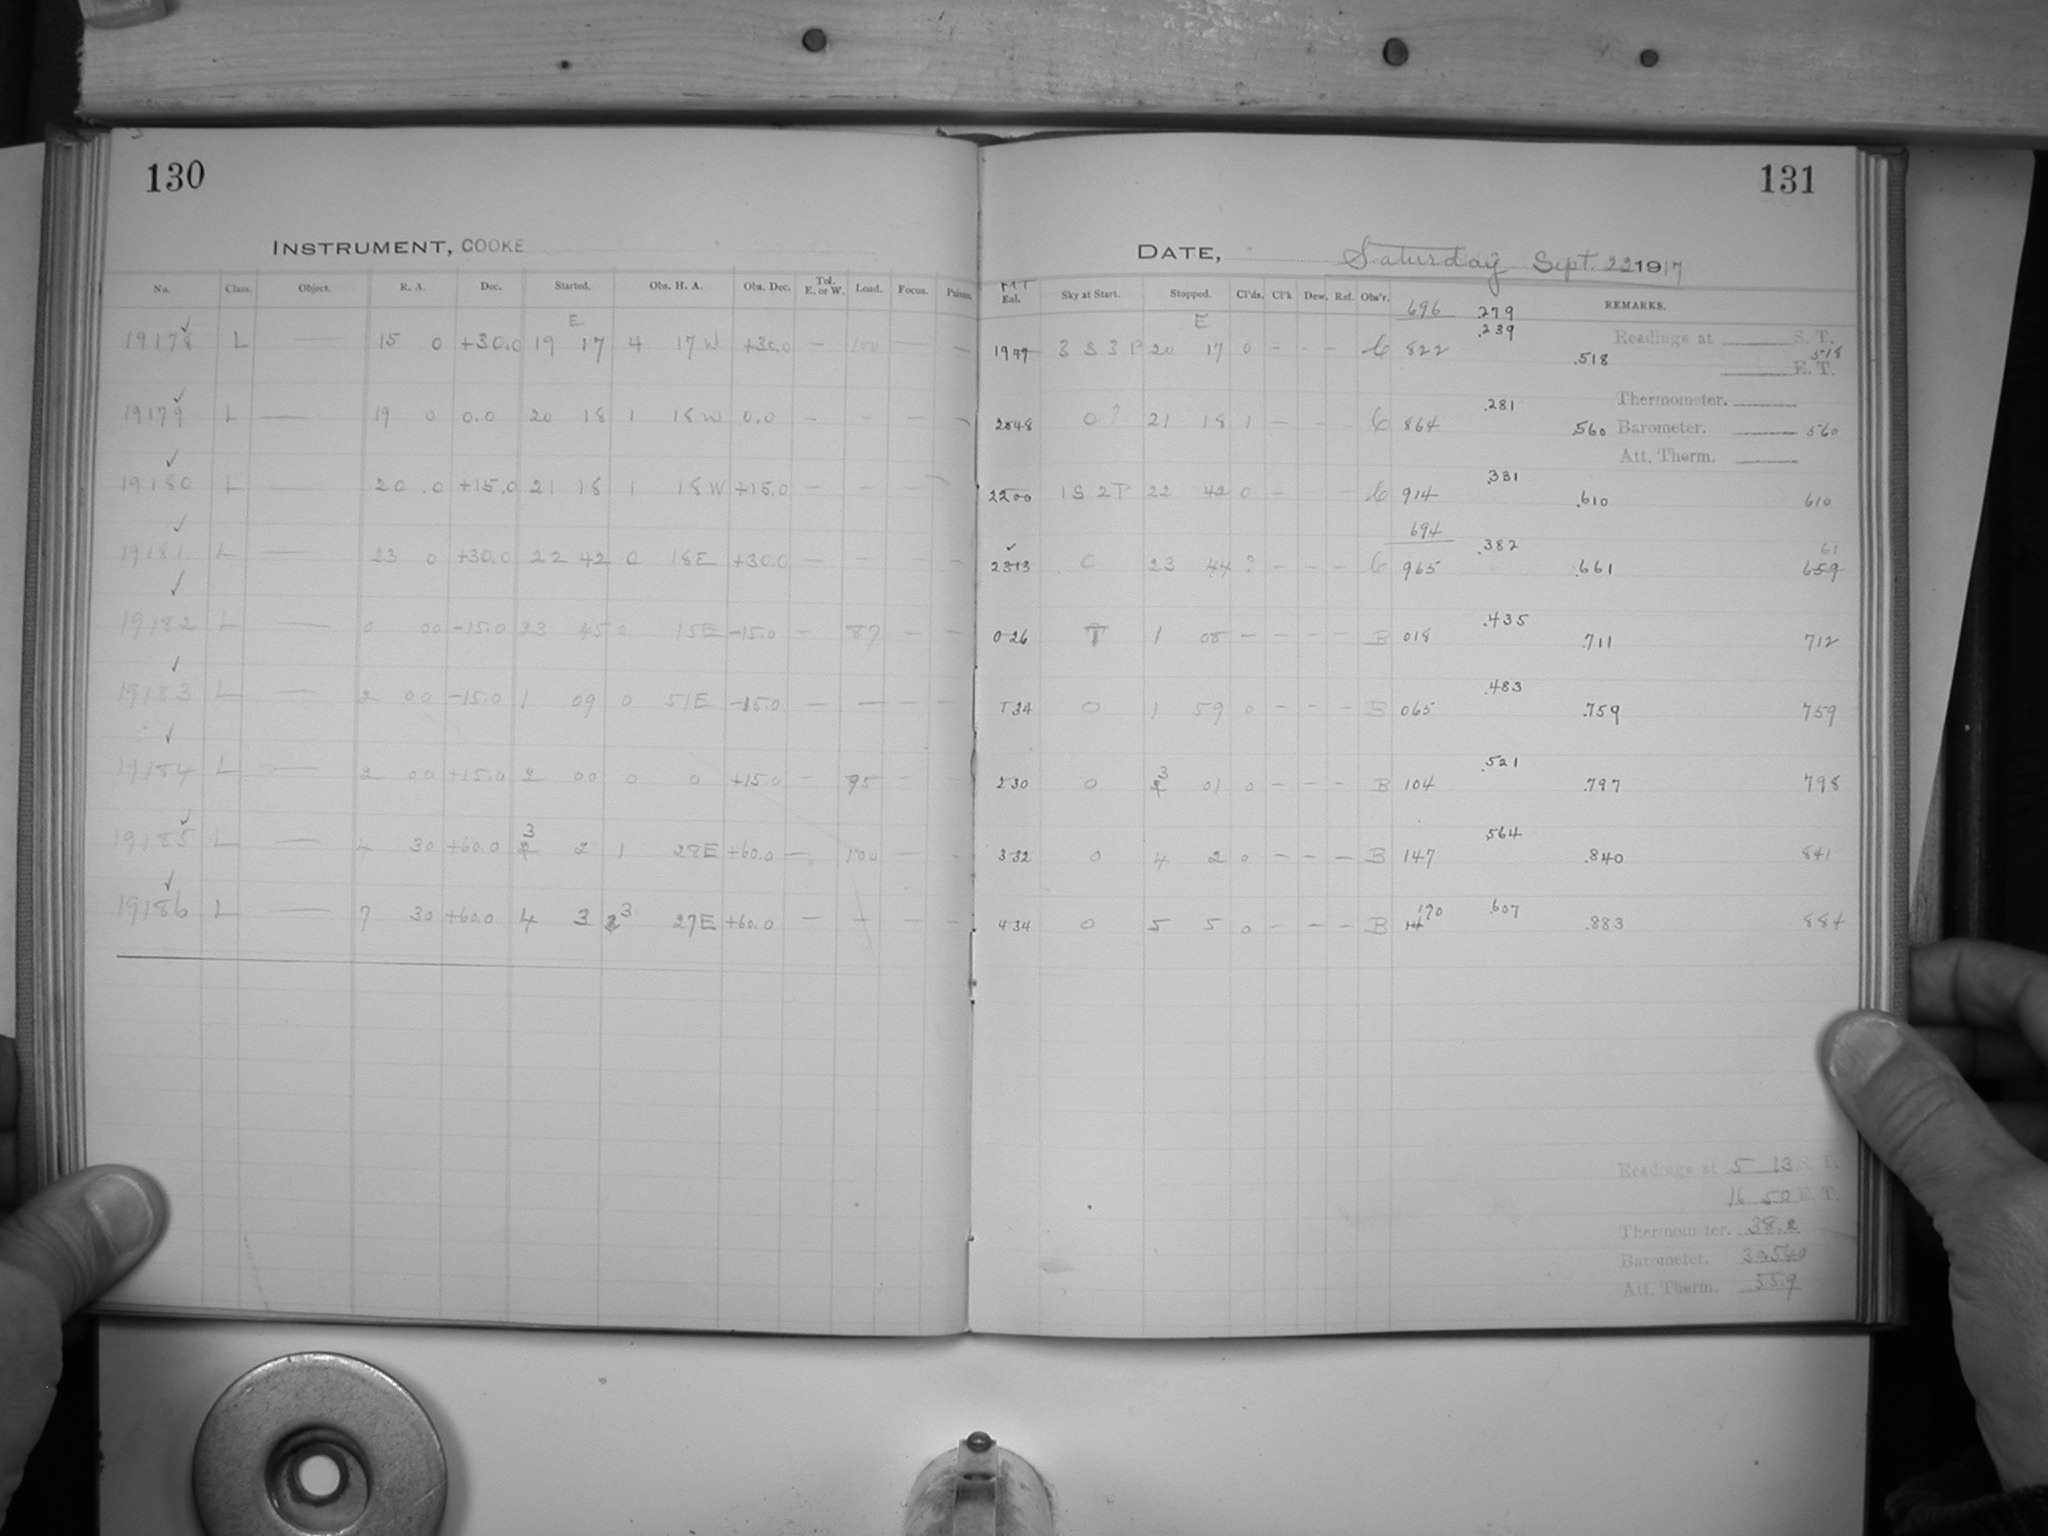 130
INSTRUMENT, COOKE
No. Class. Object. R. A. Dec. Started. Obs. H. A. Obs. Dec. Tel. E. or W. Load. Focus.
E
19178 L — 15 0 +30.0 19 17 4 17 W +30.0 — 100 — —
19179 L — 19 0 0.0 20 18 1 18 W 0.0 — — — —
19180 L — 20 0 +15.0 21 18 1 18 W +15.0 — — — —
19181 L — 23 0 +30.0 22 42 0 18 E +30.0 — — — —
19182 L — 0 00 -15.0 23 45 0 15 E -15.0 — 87 — —
19183 L — 2 00 -15.0 1 09 0 51 E -15.0 — — — —
19184 L — 2 00 +15.0 2 00 0 0 +15.0 — 95 — —
3
19185 L — 4 30 +60.0 2 2 1 28 E +60.0 — 100 — -
19186 L — 7 30 +60.0 4 3 3 27 E +60.0 — — —
131
DATE, Saturday Sept. 22 1917
MT
Eql. Sky at Start. Stopped. Cl'ds. Cl'k Dew. Ref. Obs'r. REMARKS.
696 .279
E .239
1947 3 S 3 P 20 17 0 - - - C 822 .518 Readings at S. T. 518
E. T.
.281 Thermometer.
2048 0? 21 18 1 - - - C 864 .560 Barometer. 560
Att. Therm.
.331
2200 1 S 2 P 22 42 0 - - - C 914 .610 610
694
.382 61
2313 0 23 44 ? - - - C 965 .661 659
.435
0 26 1 08 - - - - B 018 .711 712
.483
1 34 0 1 59 0 - - - B 065 .759 759
.521
3
2 30 0 2 01 0 - - - B 104 .797 798
564
3 32 0 4 2 0 - - - B 147 .840 841
190 .607
4 34 0 5 5 0 - - - B 14 .883 884
Readings at 5 13 S. T.
16 50 E. T.
Thermometer. 38.2
Barometer. 30.540
Att. Therm. 55.9